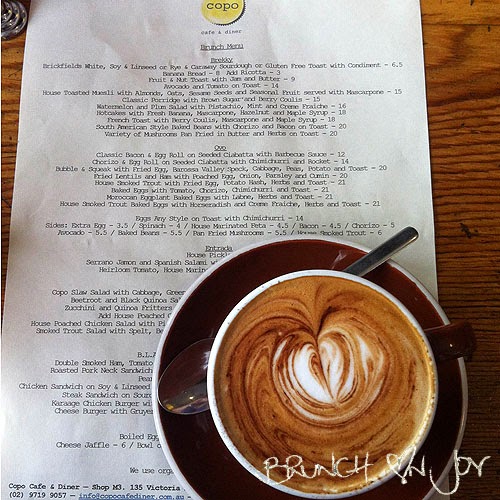 copo
cafe & diner
Brunch Menu
Brekky
Brickfields White, Soy & Linseed or Rye & Caraway Sourdough or Gluten Free Toast with Condiment - 6.5
Banana Bread - 8 Add Ricotta - 3
Fruit & Nut Toast with Jam and Butter - 9
Avocado and Tomato on Toast - 14
House Toasted Muesli with Almonds, Oats, Sesame Seeds and Seasonal Fruit served with Mascarpone - 15
Classic Porridge with Brown Sugar and Berry Coulis - 15
Watermelon and Plum Salad with Pistachio, Mint and Creme Fraiche - 16
Hotcakes with Fresh Banana, Mascarpone, Hazelnut and Maple Syrup - 18
French Toast with Berry Coulis, Mascarpone and Maple Syrup - 18
South American Style Baked Beans with Chorizo and Bacon on Toast - 20
Variety of Mushrooms Pan Fried in Butter and Herbs on Toast - 20
Ovo
Classic Bacon & Egg Roll on Seeded Ciabatta with Barbecue Sauce - 12
Chorizo & Egg Roll on Seeded Ciabatta with Chimichurri and Rocket - 14
Bubble & Squeak with Fried Egg, Barossa Valley Speck, Cabbage, Peas, Potato and Toast - 20
Fried Lentils and Ham with Poached Egg, Onion, Parsley and Cumin - 20
House Smoked Trout with Fried Egg, Potato Hash, Herbs and Toast - 21
Baked Eggs with Tomato, Chorizo, Chimichurri and Toast - 21
Moroccan Eggplant Baked Eggs with Labne, Herbs and Toast - 21
House Smoked Trout Baked Eggs with Horseradish and Creme Fraiche, Herbs and Toast - 21
Eggs Any Style on Toast with Chimichurri - 14
Sides: Extra Egg - 3.5 / Spinach - 4 / House Marinated Feta - 4.5 / Bacon - 4.5 / Chorizo - 5
Avocado - 5.5 / Baked Beans - 5.5 / Pan Fried Mushrooms - 5.5 / House Smoked Trout - 6
Entrada
House Pickl
Serrano Jamon and Spanish Salami
Heirloom Tomato, House Marin
Copo Slaw Salad with Cabbage, Gree
Beetroot and Black Quinoa Sa
Zucchini and Quinoa Fritters
Add House Poached
House Poached Chicken Salad with Pi
Smoked Trout Salad with Spelt, Be
B.L.A
Double Smoked Ham, Tomato
Roasted Pork Neck Sandwich
Pear
Chicken Sandwich on Soy & Linseed
Steak Sandwich on Sour
Karaage Chicken Burger wi
Cheese Burger with Gruye
Boiled Eg
Cheese Jaffle - 6 / Bowl o
We use org
Copo Cafe & Diner – Shop M3, 135 Victoria
(02) 9719 9057 – info@copocafediner.com.au -
BRUNCH
JOY